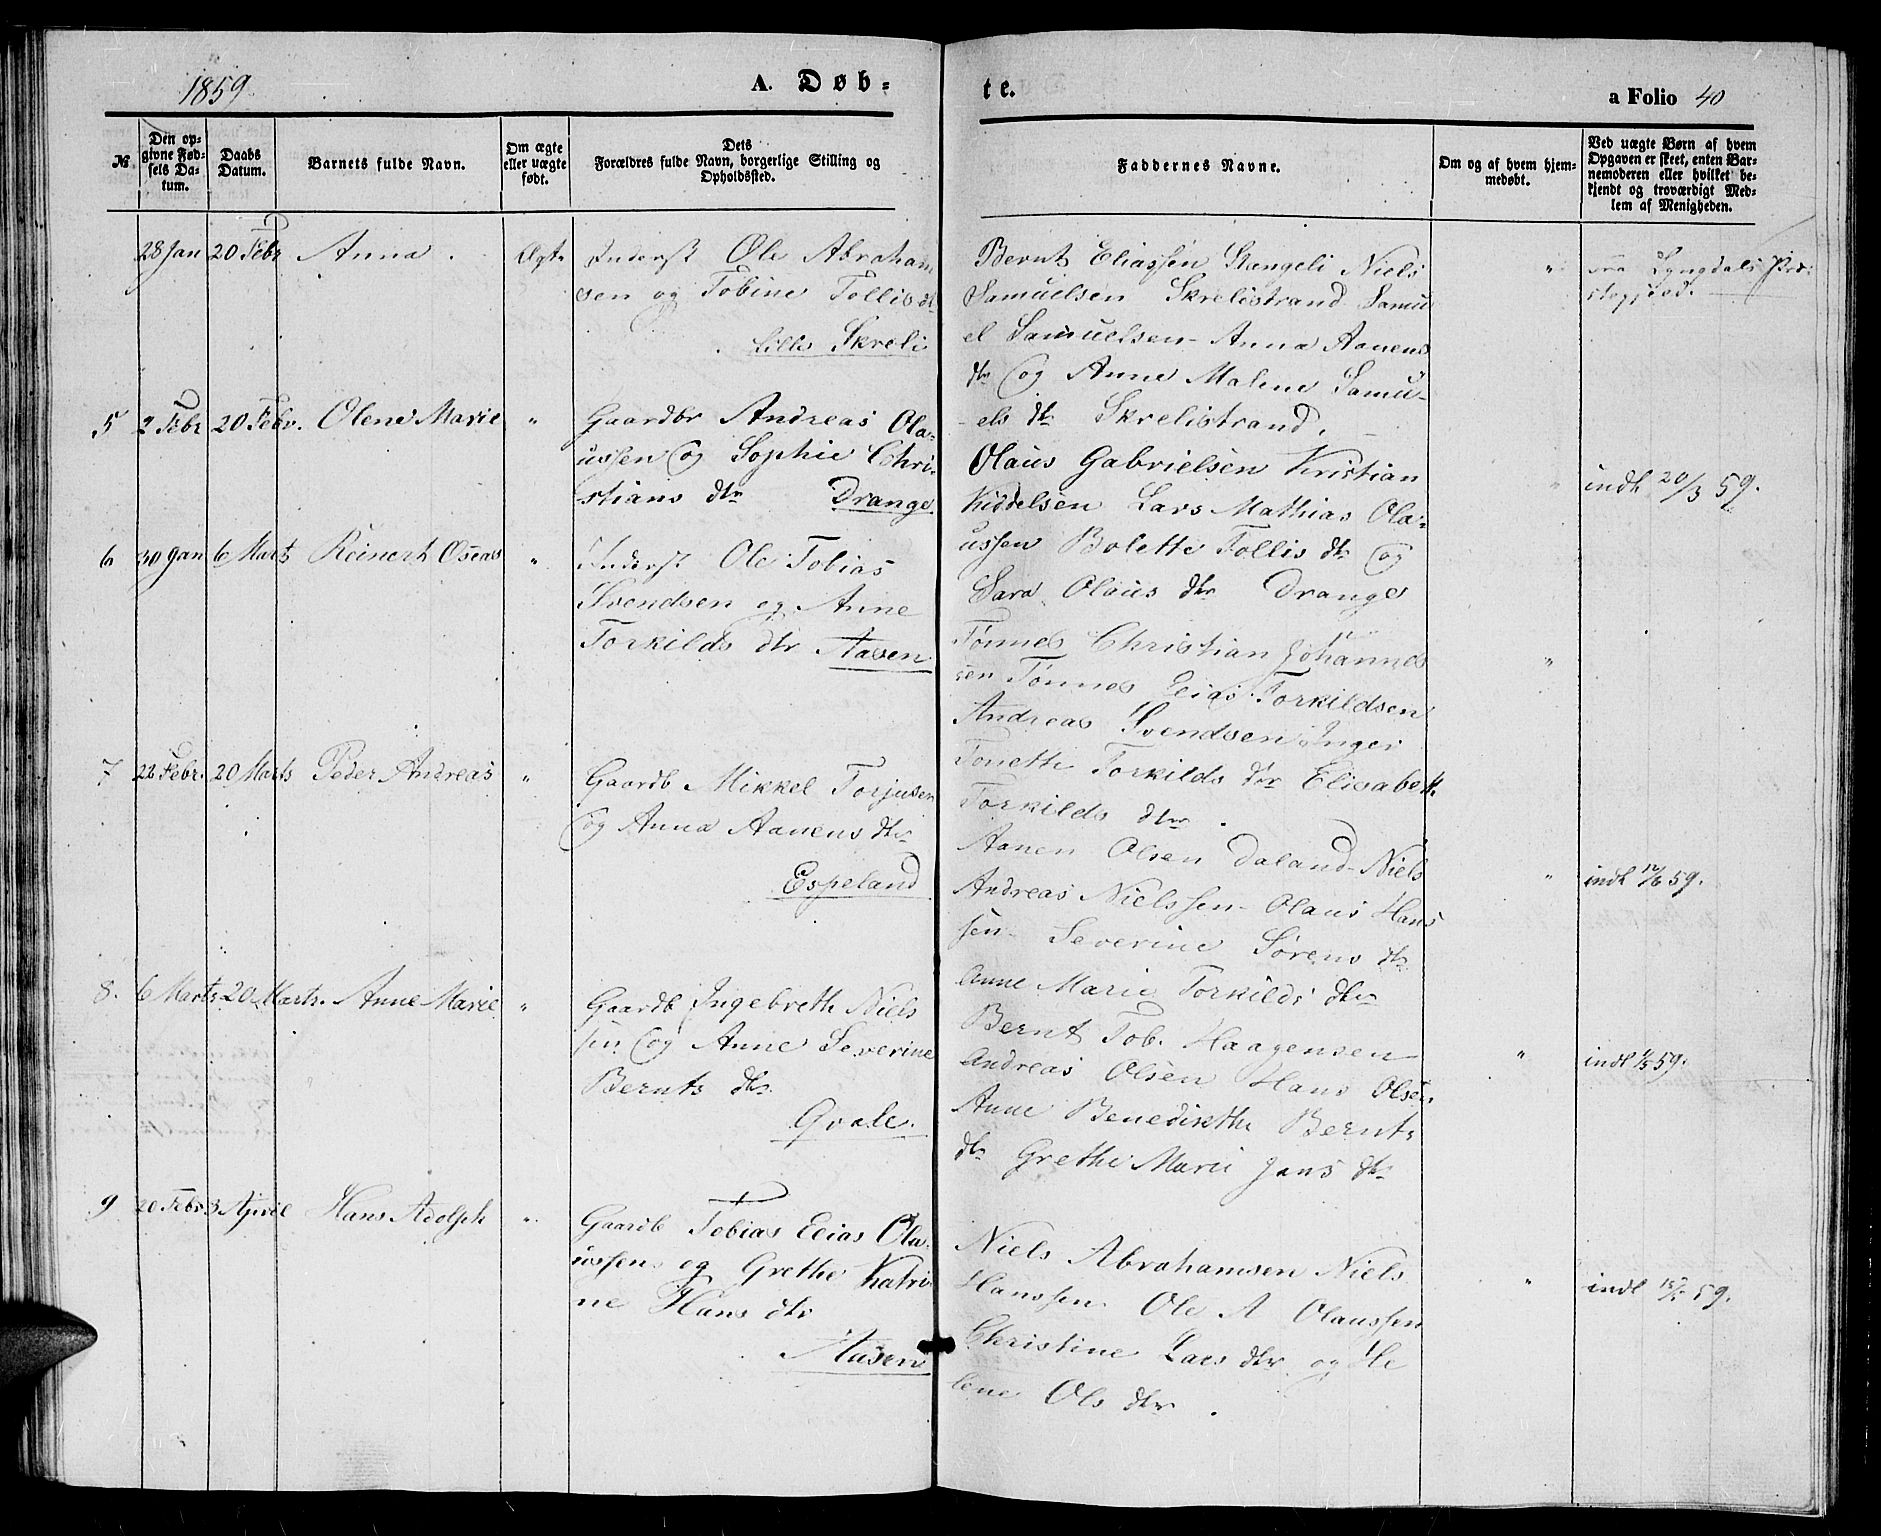 1859
A. Døb-
te.
a Folio 40
№
Den op-
givne Fød-
sels Da-
tum.
Daabs
Datum.
Barnets fulde Navn.
Om ægte
eller uægte
født.
Dets
Forældres fulde Navn, borgerlige Stilling og
Opholdssted.
Faddernes Navne.
Om og af hvem hjem-
medøbt.
Ved uægte Børn af hvem
Opgaven er skeet, enten Bar-
nemoderen eller hvilket be-
kjendt og troværdigt Med-
lem af Menigheden.
28 Jan 20 Febr Anna. Ægte Inderst Ole Abraham
sen og Tobine Tollis dt
Lille Skreli
Bernt Eliassen Stangeli Niels
Samuelsen Skrelistrand Samu
el Samuelsen - Anna Aanens
dtr og Anne Malene Samu-
els dtr Skrelistrand.
" fra Lyngdals Præ-
stegjeld.
5 2 Febr 20 Febr. Olene Marie " Gaardbr Andreas Ola-
ussen og Sophie Chri-
stians dtr Drange.
Olaus Gabrielsen Kristian
Kiddelsen Lars Mathias Ola-
ussen Bolette Tollis dtr og
Sara Olaus dtr Drange
" indl 20/3 59.
6 30 Jan 6 Marts Reinert Oseas " Inderst Ole Tobias
Svendsen og Anne
Torkilds dtr Aasen
Tønnes Christian Johannes
sen Tønnes Elias Torkildsen
Andreas Svendsen Inger
Tonethe Torkilds dtr Elisabeth
Torkilds dtr.
"
7 22 Febr. 20 Marts Peder Andreas " Gaardb Mikkel Torjusen
og Anna Aanens dtr
Espeland
Aanen Olsen Daland - Niels
Andreas Nielssen - Olaus Hans
sen - Severine Sørens dtr
Anne Marie Torkilds dtr
" indl 12/6 59.
8. 6 Marts 20 Marts. Anne Marie " Gaardb Ingebreth Niels
sen og Anne Severine
Bernts dtr
Qvale.
Bernt Tob. Haagensen
Andreas Olsen Hans Olsen
Anne Benedikthe Bernts
dtr Grethe Marie Jens dtr
" indl 59.
9 20 Febr 3 April Hans Adolph " Gaardb Tobias Elias Ola-
ussen og Grethe Katri
ne Hans dtr
Aasen
Niels Abrahamsen Niels
Hanssen Ole A Olaussen
Christine Lars dtr og He
lene Ols dtr.
" indl 59.